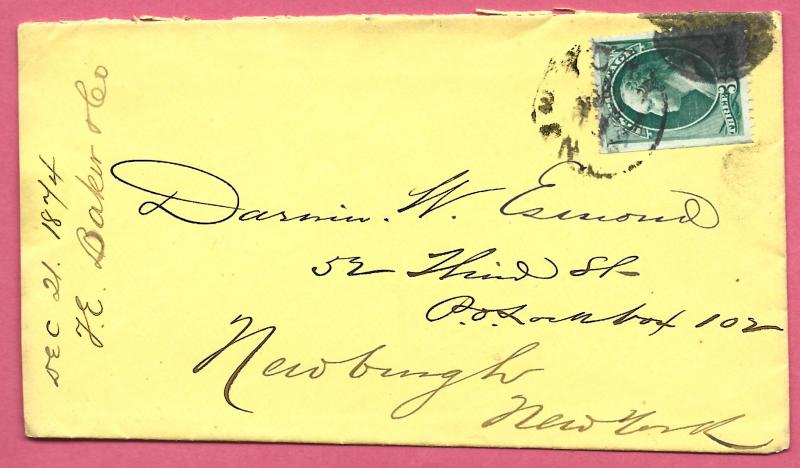 Darwin. W. Esmond
52 Third St
P.O. Lock box 102
Newburgh
New York
DEC 21. 1874
F.E. Baker & Co